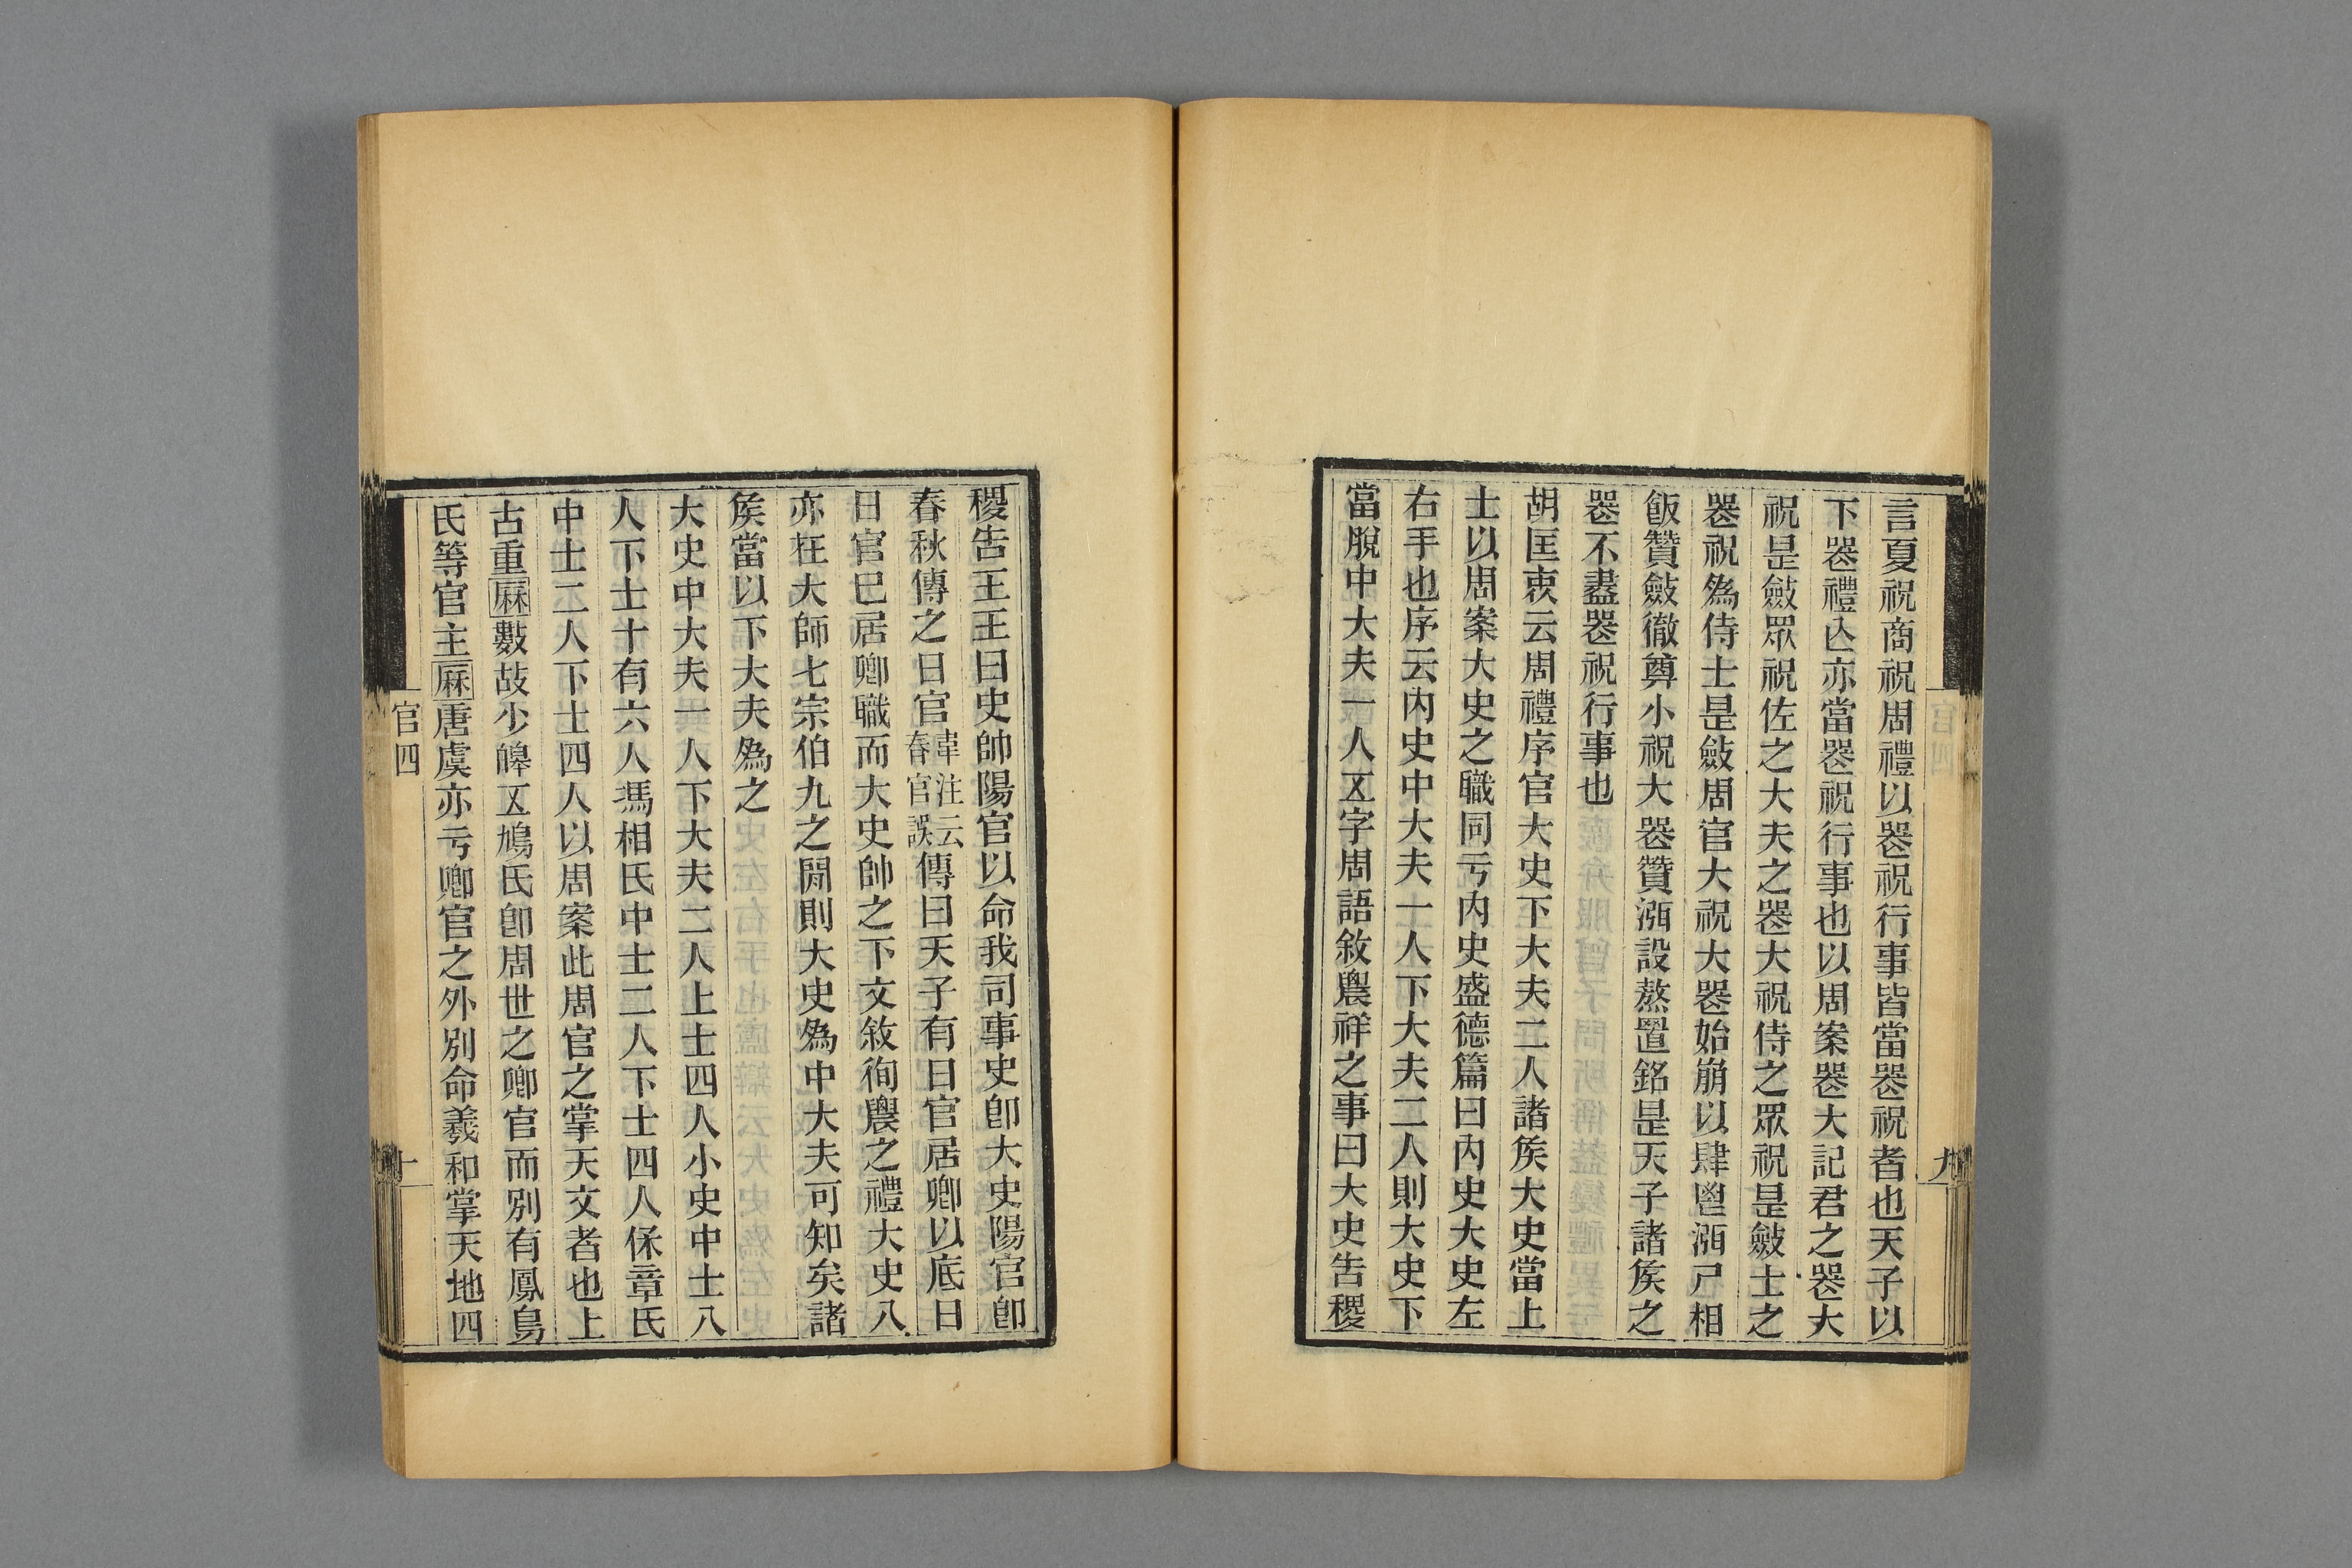 言夏祝商祝周禮以喪祝行事皆當喪祝者也天子以
下喪禮亾亦當喪祝行事也以周案喪大記君之喪大
祝是斂眾祝佐之大夫之喪大祝侍之眾祝是斂士之
喪祝為侍士是斂周官大祝大喪始崩以肆鬯湎尸相
飯贊斂徹奠小祝大喪贊湎設熬置銘是天子諸矦之
喪不盡喪祝行事也
胡匡衷云周禮序官大史下大夫二人諸矦大史當上
士以周案大史之職同亏內史盛德篇曰內史大史左
右手也序云內史中大夫一人下大夫二人則大史下
當脫中大夫一人五字周語敘農祥之事曰大史告稷
九
稷告王王曰史帥陽官以命我司事史卽大史陽官卽
春秋傳之日官韋注云春官誤傳曰天子有日官居卿以底日
日官巳居卿職而大史帥之下文敘徇農之禮大史八
亦在大師七宗伯九之閒則大史為中大夫可知矣諸
矦當以下大夫為之
大史中大夫一人下大夫二人上士四人小史中士八
人下士十有六人馮相氏中士二人下士四人保章氏
中士二人下士四人以周案此周官之掌天文者也上
古重厤數故少皞五鳩氏卽周世之卿官而別有鳳鳥
氏等官主厤唐虞亦亏卿官之外別命羲和掌天地四
官四
十